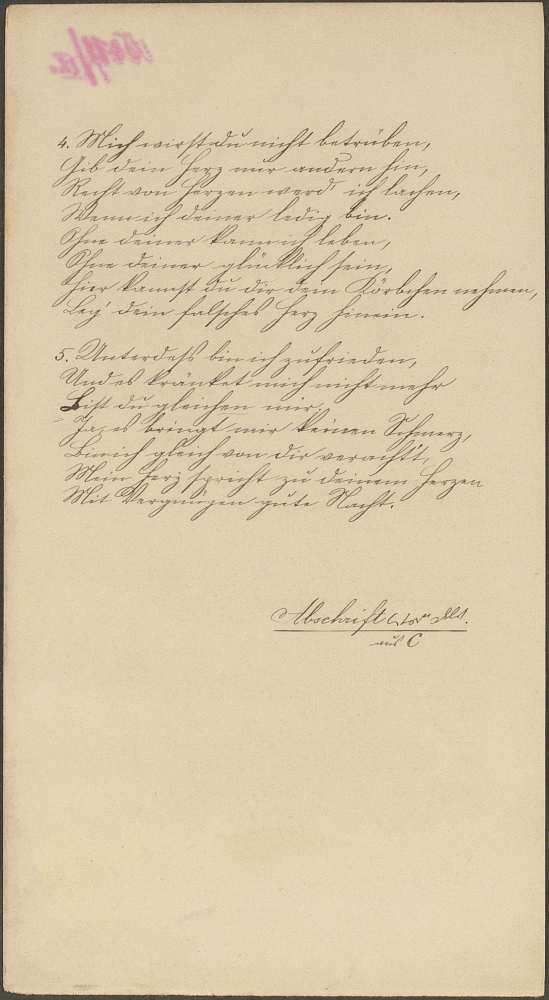 4. Mich wirst du nicht betrüben,
Gib dein Herz nur andern hin,
Recht von Herzen werd' ich lachen,
Wenn ich deiner ledig bin.
Ohne deiner kann ich leben,
Ohne deiner glücklich sein,
Hier kannst du dir dein Körbchen nehmen,
Leg' dein falsches Herz hinein.
5. Unterdeß bin ich zufrieden,
Und es kränket mich nicht mehr
Bist du gleichen mir,
Ja, es bringt mir keinen Schmerz,
Bin ich gleich von dir veracht't,
Mein Herz spricht zu deinem Herzen
Mit Vergnügen gute Nacht.
Abschrift
aus C